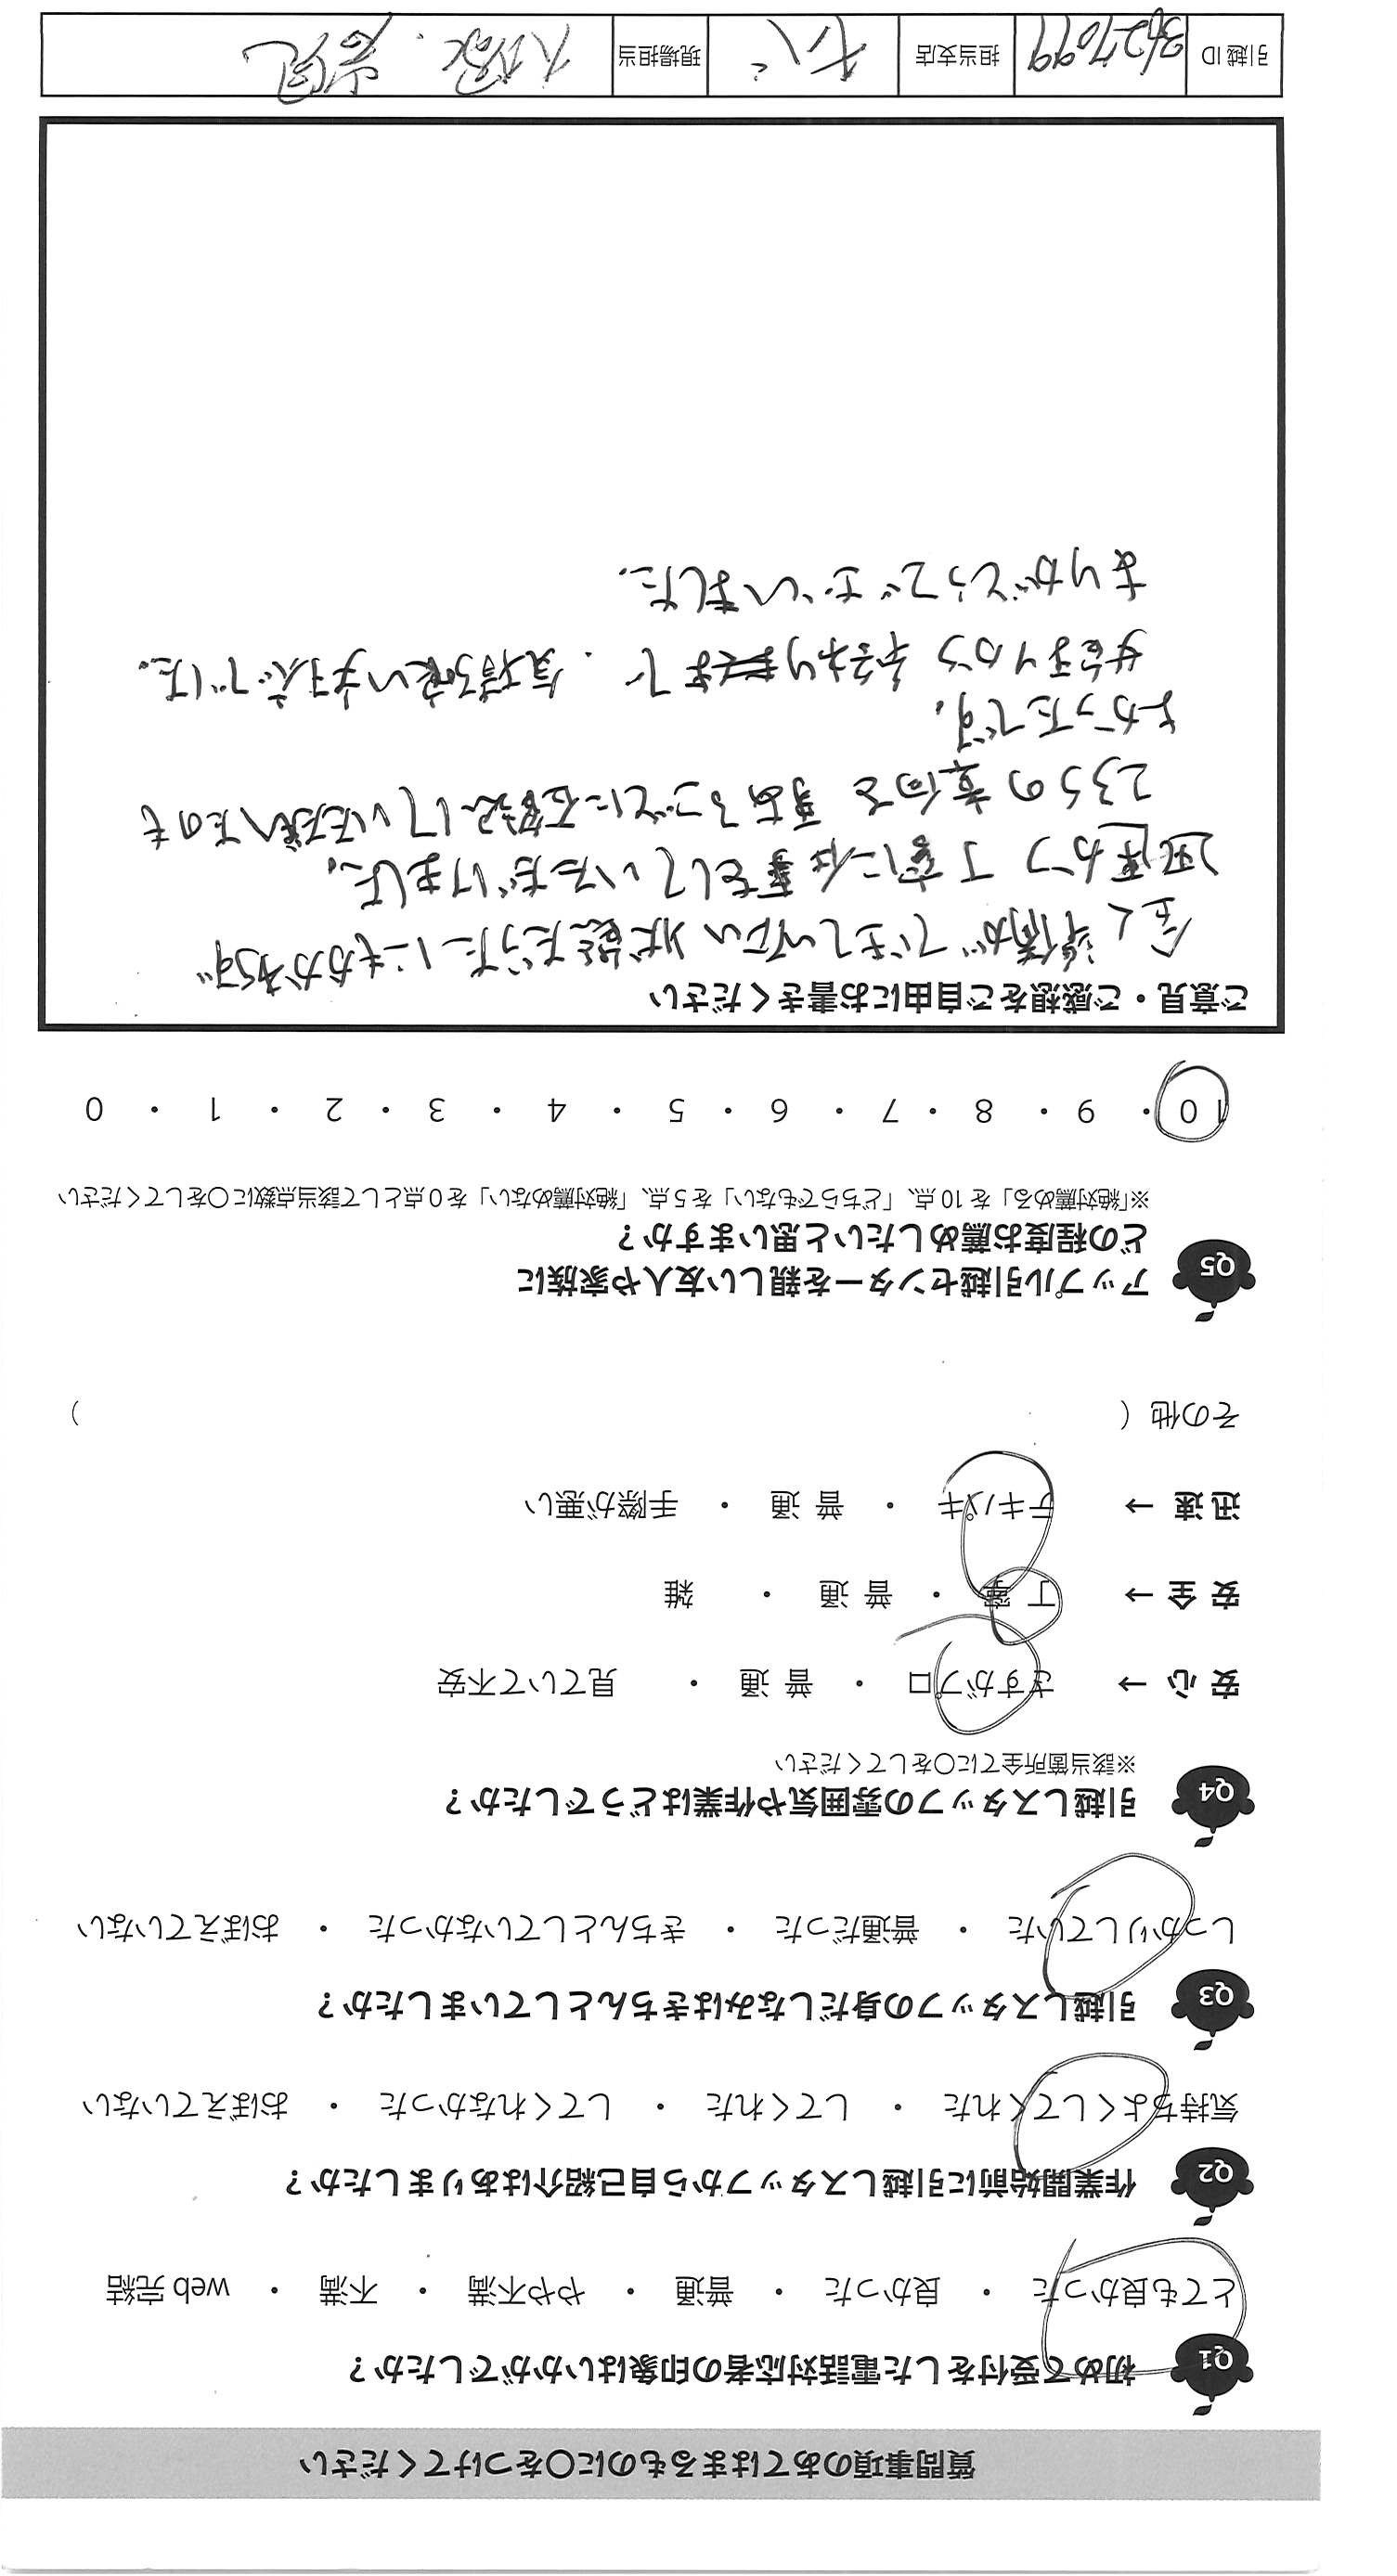 質問事項のあてはまるものに〇をつけてください
Q1 初めて受付をした電話対応者の印象はいかがでしたか？
とても良かった ・ 良かった ・ 普通 ・ やや不満 ・ 不満 ・ web 完結
Q2 作業開始前に引越しスタッフから自己紹介はありましたか？
気持ちよくしてくれた ・ してくれた ・ してくれなかった ・ おぼえていない
Q3 引越しスタッフの身だしなみはきちんとしていましたか？
しっかりしていた ・ 普通だった ・ きちんとしていなかった ・ おぼえていない
Q4 引越しスタッフの雰囲気や作業はどうでしたか？
※該当箇所全てに〇をしてください
安 心 → さすがプロ ・ 普 通 ・ 見ていて不安
安 全 → 丁 寧 ・ 普 通 ・ 雑
迅 速 → テキパキ ・ 普 通 ・ 手際が悪い
その他（ ）
Q5 アップル引越センターを親しい友人や家族に
どの程度お薦めしたいと思いますか？
※「絶対薦める」を 10 点、「どちらでもない」を 5 点、「絶対薦めない」を 0 点として該当点数に〇をしてください
10 ・ 9 ・ 8 ・ 7 ・ 6 ・ 5 ・ 4 ・ 3 ・ 2 ・ 1 ・ 0
ご意見・ご感想をご自由にお書きください
全く準備ができていない状態だったにもかかわらず
迅速かつ丁寧に仕事をしていただけました。
こちらの意向を事あるごとに確認していただいたのも
よかったです。
せ 終わりまで、気持ち良い対応でした。
ありがとうございました。
引越 ID 3627099 担当支店 現場担当 大塚．岩